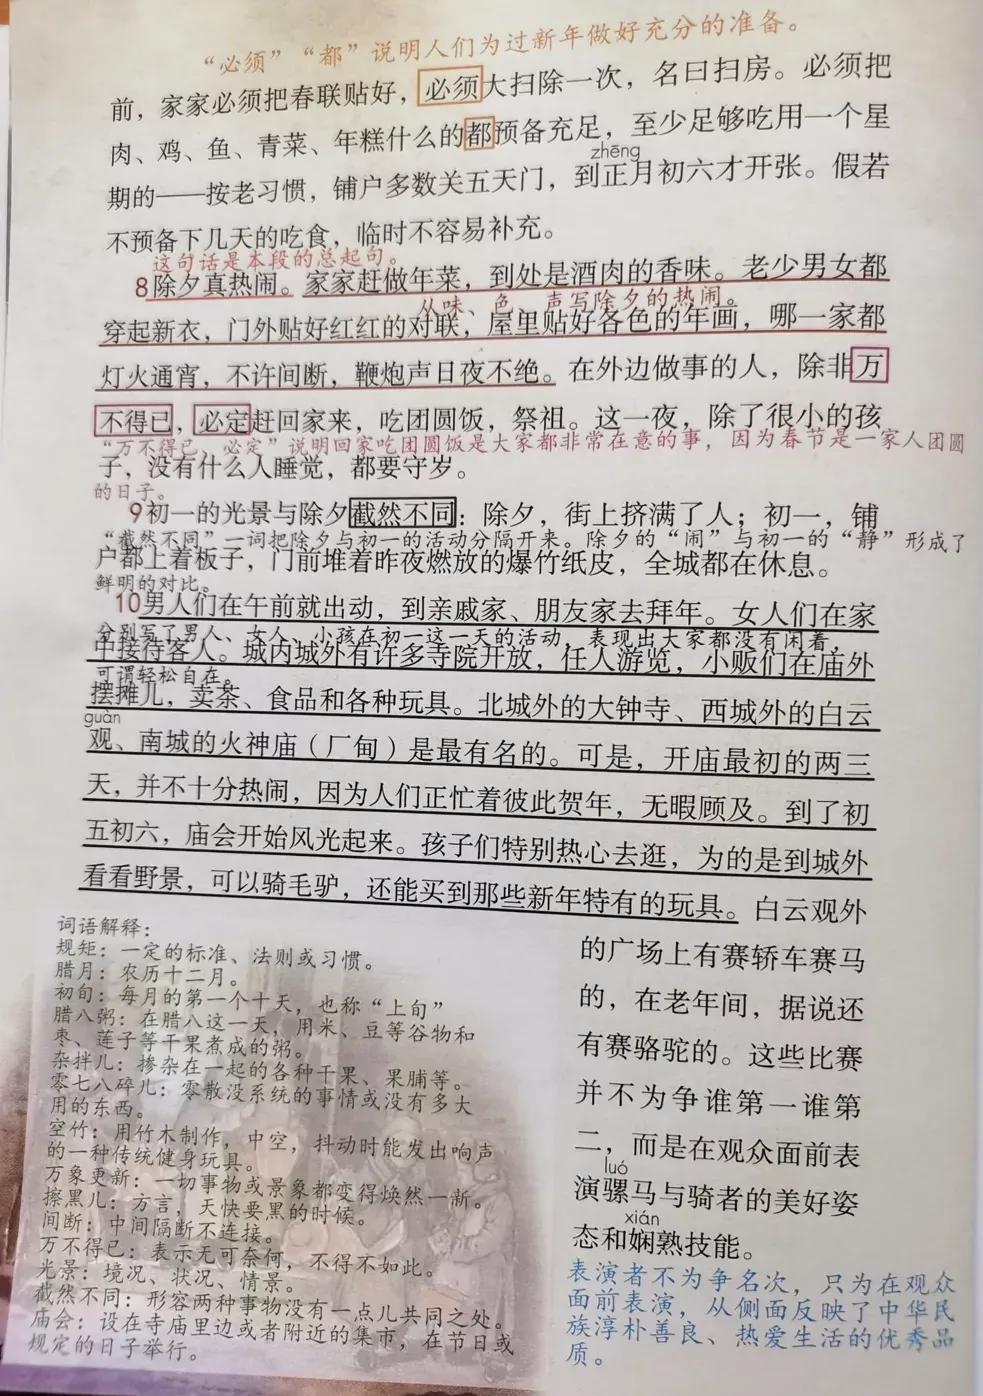 “必须”“都”说明人们为过新年做好充分的准备。
前，家家必须把春联贴好，必须大扫除一次，名曰扫房。必须把
肉、鸡、鱼、青菜、年糕什么的都预备充足，至少足够吃用一个星
zhēng
期的——按老习惯，铺户多数关五天门，到正月初六才开张。假若
不预备下几天的吃食，临时不容易补充。
这句话是本段的总起句。
8除夕真热闹。家家赶做年菜，到处是酒肉的香味。老少男女都
从味、色、声写除夕的热闹。
穿起新衣，门外贴好红红的对联，屋里贴好各色的年画，哪一家都
灯火通宵，不许间断，鞭炮声日夜不绝。在外边做事的人，除非万
不得已，必定赶回家来，吃团圆饭，祭祖。这一夜，除了很小的孩
“万不得已，必定”说明回家吃团圆饭是大家都非常在意的事，因为春节是一家人团圆
子，没有什么人睡觉，都要守岁。
的日子。
9初一的光景与除夕截然不同：除夕，街上挤满了人；初一，铺
“截然不同”一词把除夕与初一的活动分隔开来。除夕的“闹”与初一的“静”形成了
户都上着板子，门前堆着昨夜燃放的爆竹纸皮，全城都在休息。
鲜明的对比。
10男人们在午前就出动，到亲戚家、朋友家去拜年。女人们在家
分别写了男人、女人、小孩在初一这一天的活动，表现出大家都没有闲着，
中接待客人。城内城外有许多寺院开放，任人游览，小贩们在庙外
可谓轻松自在。
摆摊儿，卖茶、食品和各种玩具。北城外的大钟寺、西城外的白云
guàn
观、南城的火神庙（厂甸）是最有名的。可是，开庙最初的两三
天，并不十分热闹，因为人们正忙着彼此贺年，无暇顾及。到了初
五初六，庙会开始风光起来。孩子们特别热心去逛，为的是到城外
看看野景，可以骑毛驴，还能买到那些新年特有的玩具。白云观外
的广场上有赛轿车赛马
的，在老年间，据说还
有赛骆驼的。这些比赛
并不为争谁第一谁第
二，而是在观众面前表
luó
演骡马与骑者的美好姿
xián
态和娴熟技能。
表演者不为争名次，只为在观众
面前表演，从侧面反映了中华民
族淳朴善良、热爱生活的优秀品
质。
词语解释：
规矩：一定的标准、法则或习惯。
腊月：农历十二月。
初旬：每月的第一个十天，也称“上旬”
腊八粥：在腊八这一天，用米、豆等谷物和
枣、莲子等干果煮成的粥。
杂拌儿：掺杂在一起的各种干果、果脯等。
零七八碎儿：零散没系统的事情或没有多大
用的东西。
空竹：用竹木制作，中空，抖动时能发出响声
的一种传统健身玩具。
万象更新：一切事物或景象都变得焕然一新。
擦黑儿：方言，天快要黑的时候。
间断：中间隔断不连接。
万不得已：表示无可奈何，不得不如此。
光景：境况、状况、情景。
截然不同：形容两种事物没有一点儿共同之处。
庙会：设在寺庙里边或者附近的集市，在节日或
规定的日子举行。